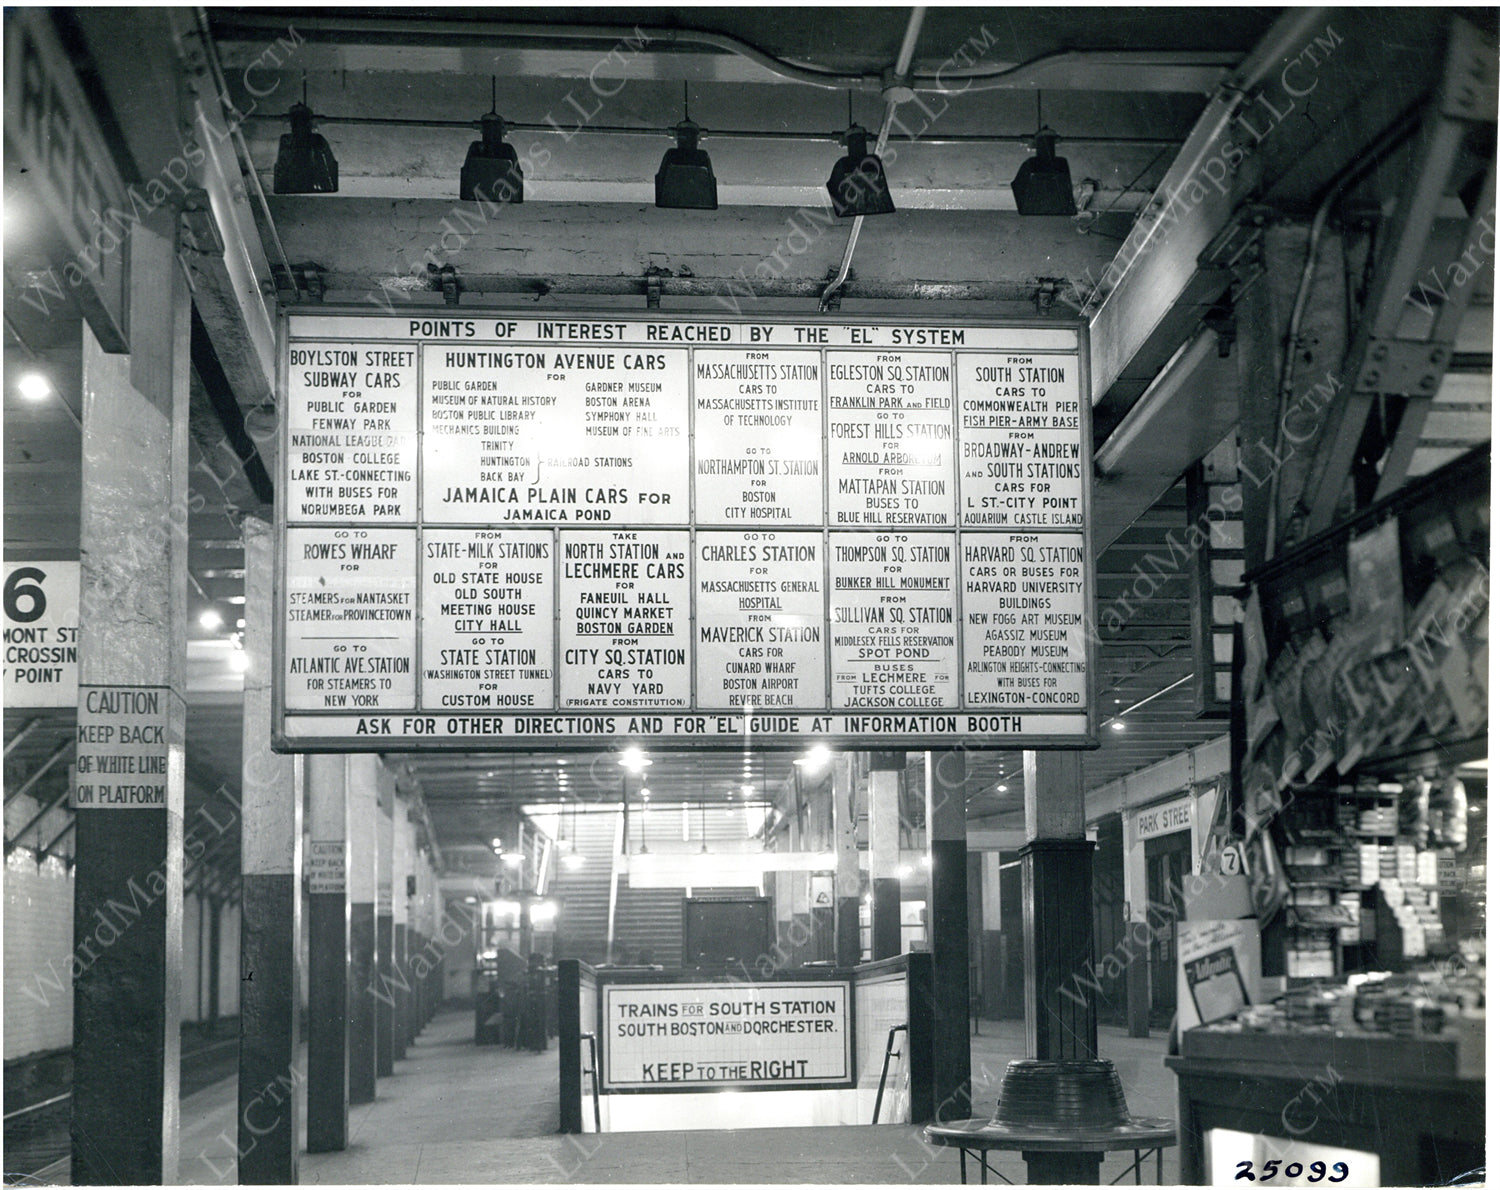 POINTS OF INTEREST REACHED BY THE "EL" SYSTEM
BOYLSTON STREET
SUBWAY CARS
FOR
PUBLIC GARDEN
FENWAY PARK
NATIONAL LEAGUE
BOSTON COLLEGE
LAKE ST.-CONNECTING
WITH BUSES FOR
NORUMBEGA PARK
HUNTINGTON AVENUE CARS
FOR
PUBLIC GARDEN
MUSEUM OF NATURAL HISTORY
BOSTON PUBLIC LIBRARY
MECHANICS BUILDING
GARDNER MUSEUM
BOSTON ARENA
SYMPHONY HALL
MUSEUM OF FINE ARTS
TRINITY
HUNTINGTON
BACK BAY
RAILROAD STATIONS
JAMAICA PLAIN CARS FOR
JAMAICA POND
FROM
MASSACHUSETTS STATION
CARS TO
MASSACHUSETTS INSTITUTE
OF TECHNOLOGY
GO TO
NORTHAMPTON ST. STATION
FOR
BOSTON
CITY HOSPITAL
FROM
EGLESTON SQ. STATION
CARS TO
FRANKLIN PARK AND FIELD
GO TO
FOREST HILLS STATION
FOR
ARNOLD ARBORETUM
FROM
MATTAPAN STATION
BUSES TO
BLUE HILL RESERVATION
FROM
SOUTH STATION
CARS TO
COMMONWEALTH PIER
FISH PIER-ARMY BASE
FROM
BROADWAY-ANDREW
AND SOUTH STATIONS
CARS FOR
L ST.-CITY POINT
AQUARIUM CASTLE ISLAND
GO TO
ROWES WHARF
FOR
STEAMERS FOR NANTASKET
STEAMER FOR PROVINCETOWN
GO TO
ATLANTIC AVE STATION
FOR STEAMERS TO
NEW YORK
FROM
STATE-MILK STATIONS
FOR
OLD STATE HOUSE
OLD SOUTH
MEETING HOUSE
CITY HALL
GO TO
STATE STATION
(WASHINGTON STREET TUNNEL)
FOR
CUSTOM HOUSE
TAKE
NORTH STATION AND
LECHMERE CARS
FOR
FANEUIL HALL
QUINCY MARKET
BOSTON GARDEN
FROM
CITY SQ. STATION
CARS TO
NAVY YARD
(FRIGATE CONSTITUTION)
GO TO
CHARLES STATION
FOR
MASSACHUSETTS GENERAL
HOSPITAL
FROM
MAVERICK STATION
CARS FOR
CUNARD WHARF
BOSTON AIRPORT
REVERE BEACH
GO TO
THOMPSON SQ. STATION
FOR
BUNKER HILL MONUMENT
FROM
SULLIVAN SQ. STATION
CARS FOR
MIDDLESEX FELLS RESERVATION
SPOT POND
BUSES
FROM LECHMERE FOR
TUFTS COLLEGE
JACKSON COLLEGE
FROM
HARVARD SQ. STATION
CARS OR BUSES FOR
HARVARD UNIVERSITY
BUILDINGS
NEW FOGG ART MUSEUM
AGASSIZ MUSEUM
PEABODY MUSEUM
ARLINGTON HEIGHTS-CONNECTING
WITH BUSES FOR
LEXINGTON-CONCORD
ASK FOR OTHER DIRECTIONS AND FOR "EL" GUIDE AT INFORMATION BOOTH
6
MONT ST
CROSSIN
POINT
CAUTION
KEEP BACK
OF WHITE LINE
ON PLATFORM
CAUTION
KEEP BACK
OF WHITE LINE
ON PLATFORM
PARK STREET
7
TRAINS FOR SOUTH STATION
SOUTH BOSTON AND DORCHESTER.
KEEP TO THE RIGHT
25099
WardMaps LLC™